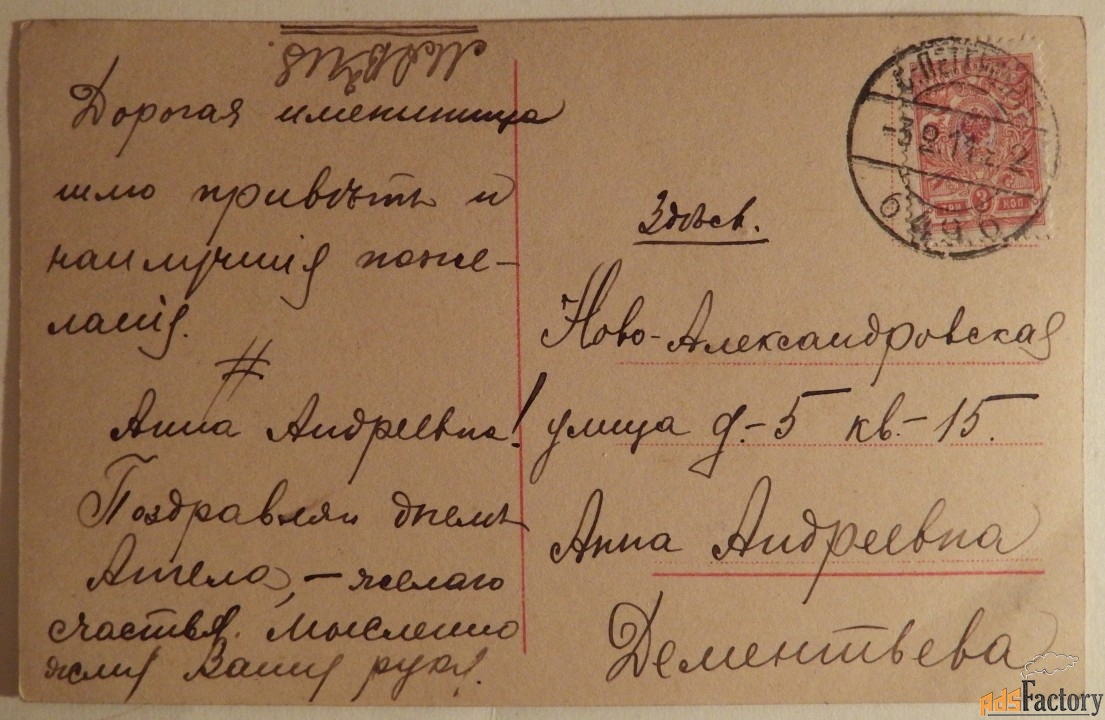 Дорогая именинница
шлю привѣтъ и
наилучшія поже-
ланія.
Анна Андреевна!
Поздравляю днемъ
Ангела, – желаю
счастья. Мысленно
жму Ваши руки.
Здѣсь.
Ново-Александровская
улица д.-5 кв.-15.
Анна Андреевна
Дементьева
С.ПЕТЕРБУРГ
-3 2 14
ТРИ 3 КОП
adsFactory